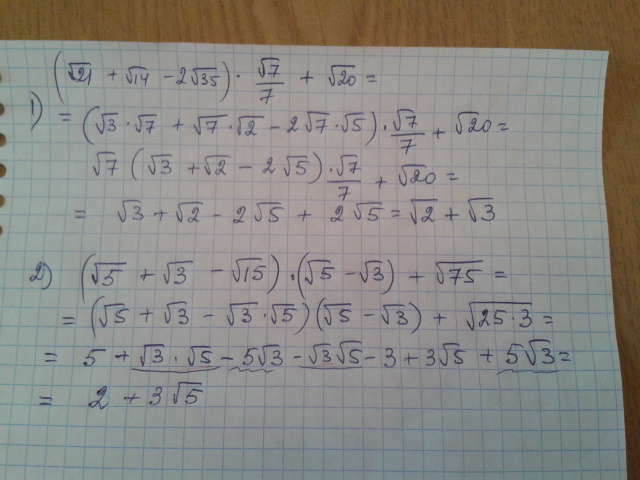 (√21 + √14 - 2√35) · √7/7 + √20 =
1) = (√3·√7 + √7·√2 - 2√7·√5) · √7/7 + √20 =
√7 (√3 + √2 - 2√5) · √7/7 + √20 =
= √3 + √2 - 2√5 + 2√5 = √2 + √3
2) (√5 + √3 - √15)·(√5 - √3) + √75 =
= (√5 + √3 - √3·√5)(√5 - √3) + √25·3 =
= 5 + √3·√5 - 5√3 - √3√5 - 3 + 3√5 + 5√3 =
= 2 + 3√5